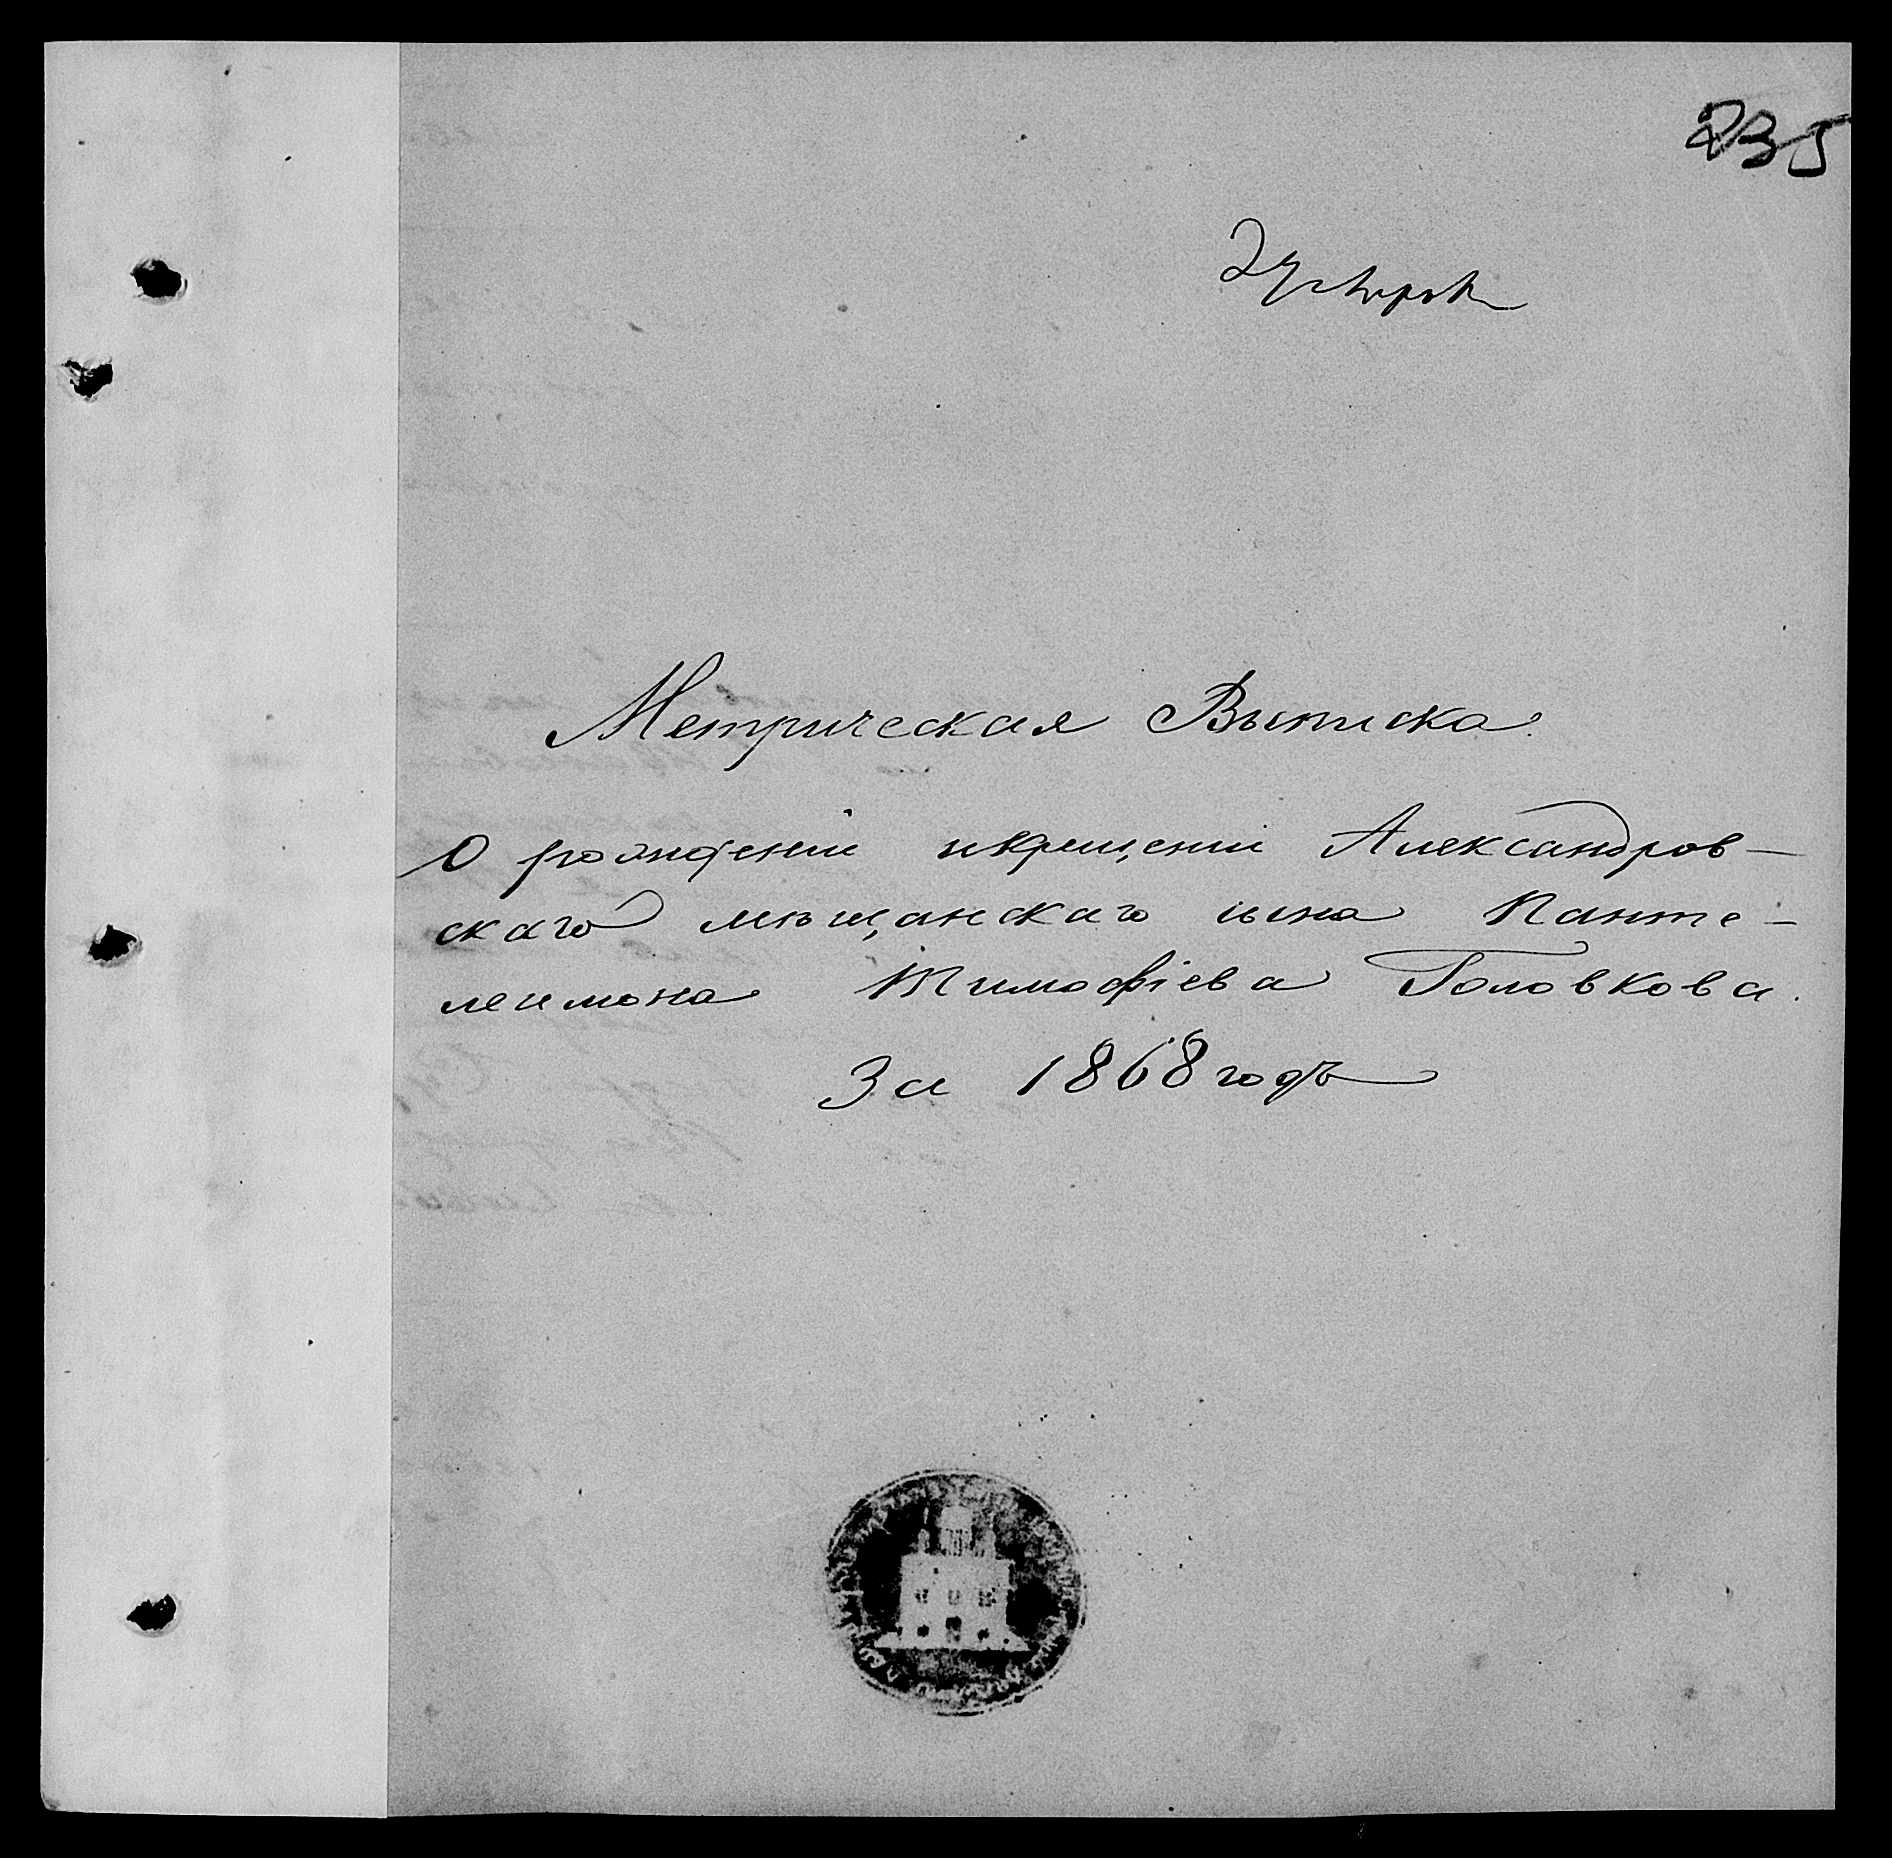 235
Метрическая Выписка.
О рождении икрещении Александров-
скаго мѣщанскаго сына Панте-
леимона Тимофіева Головкова.
За 1868 годъ